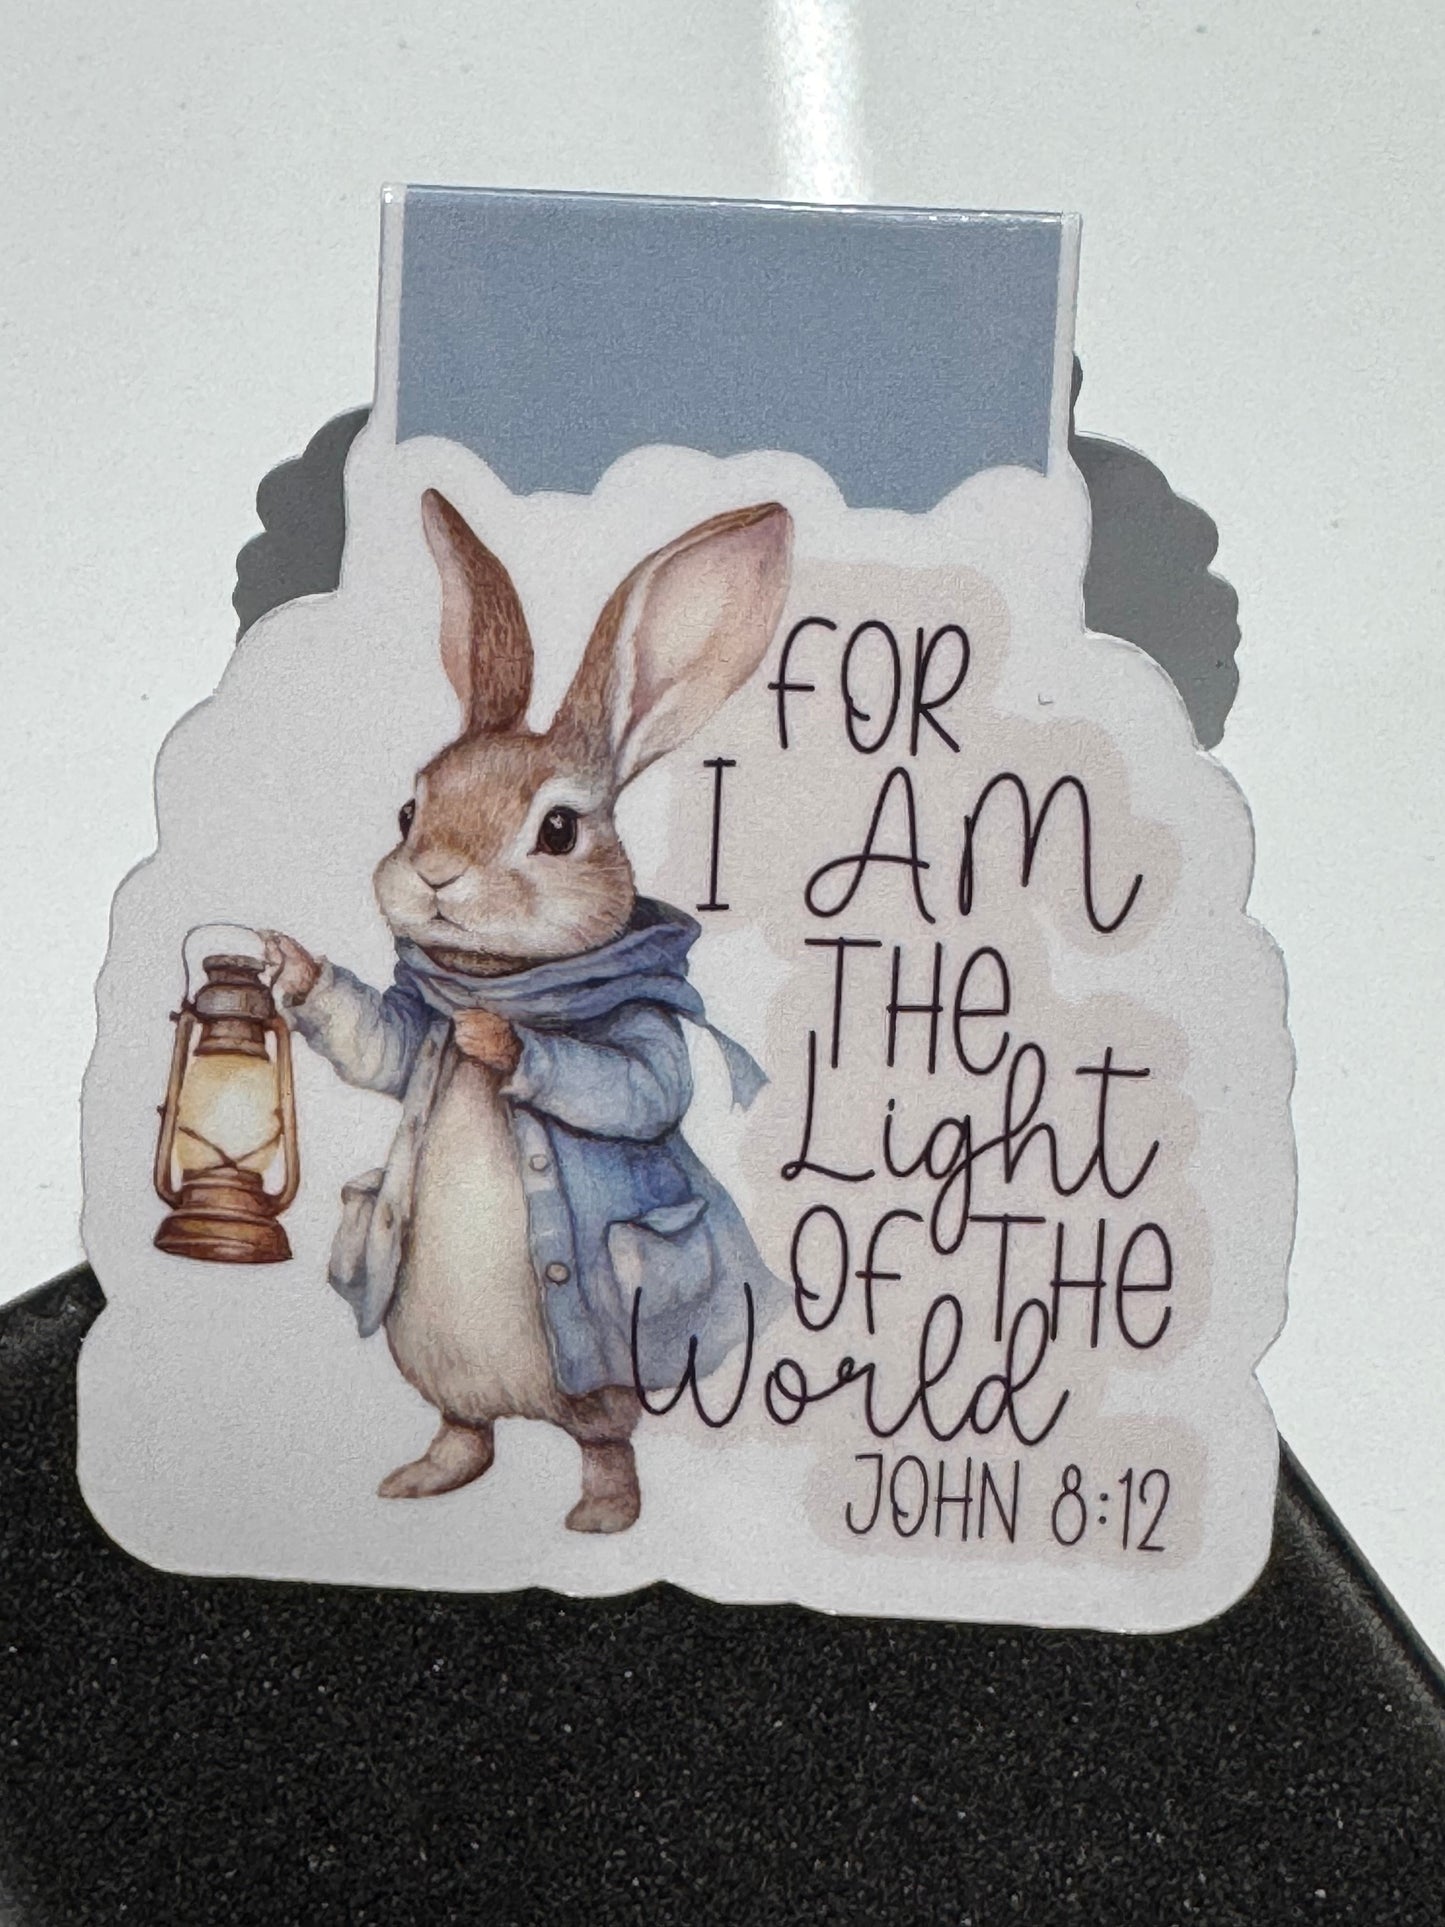 FOR
I AM
THE
Light
OF THE
World
JOHN 8:12